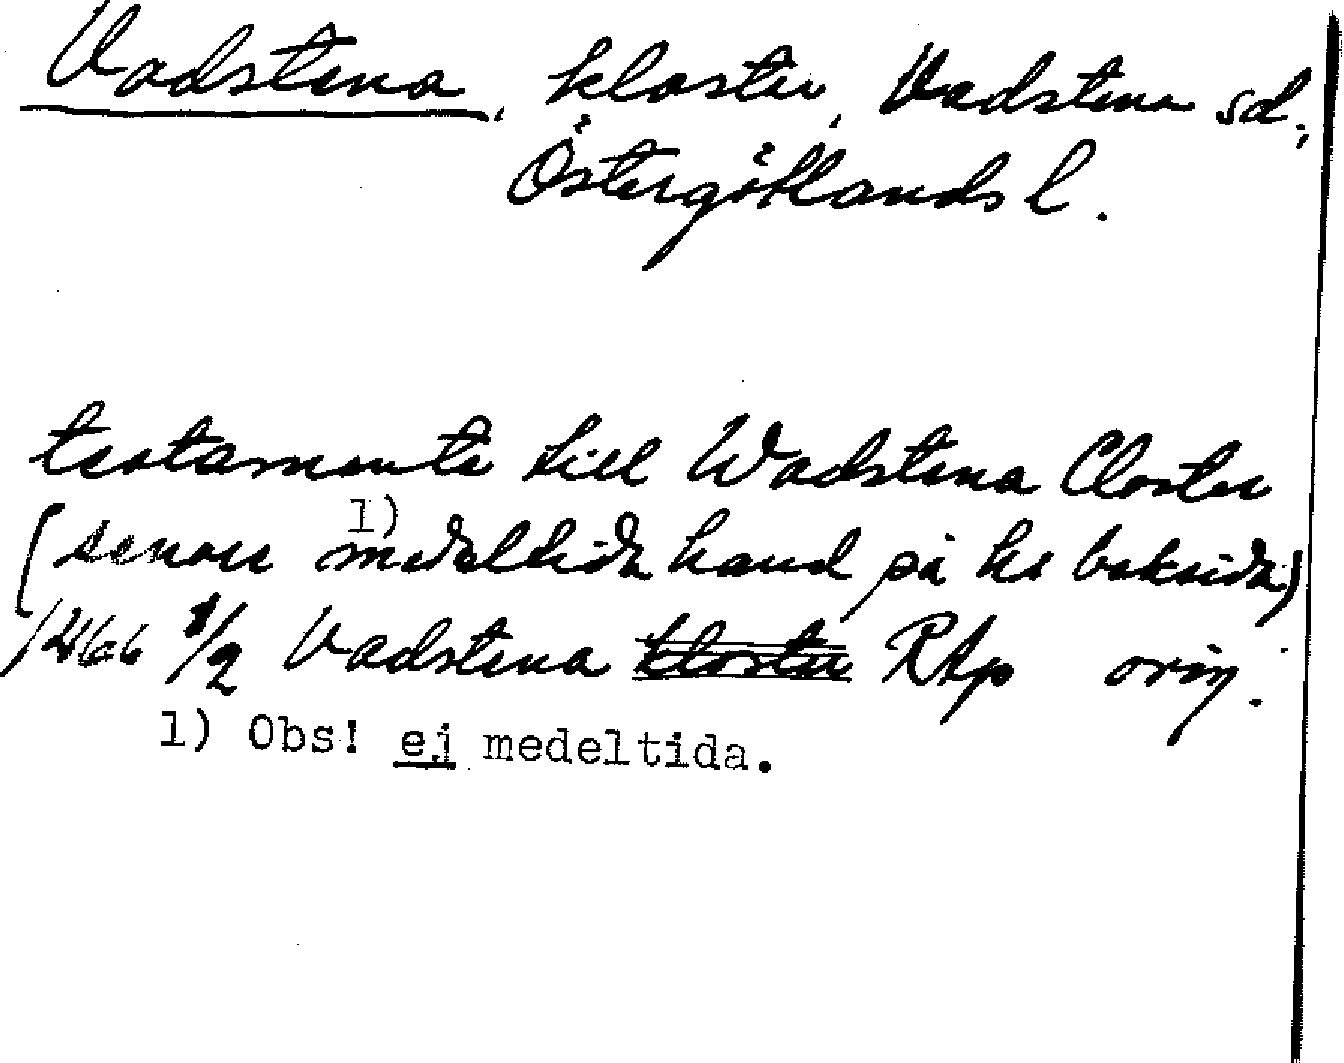 Vadstena, kloster, Vadstena sd,
Östergötlands l.
testamente till Wadstena Closter
1)
(senare medeltida hand på hs baksida)
1466 1/2 Vadstena kloster RAp orig.
1) Obs! ej medeltida.